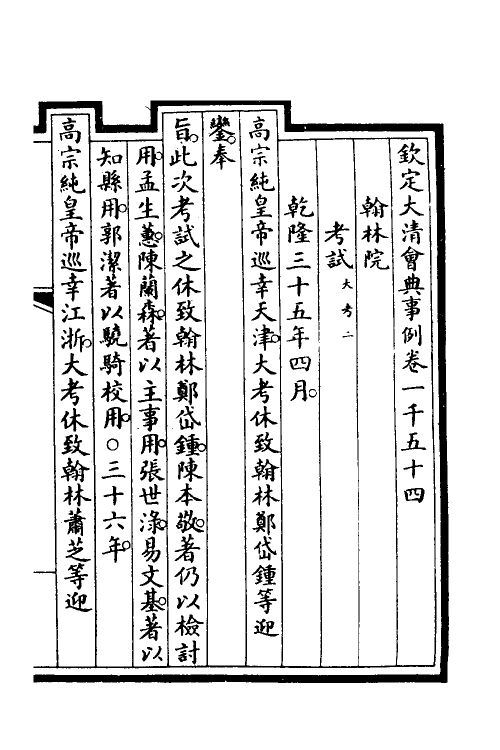 欽定大清會典事例卷一千五十四
翰林院
考試大考二
乾隆三十五年四月。
高宗純皇帝巡幸天津。大考休致翰林鄭岱鍾等迎
鑾。奉
旨。此次考試之休致翰林鄭岱鍾。陳本敬。著仍以檢討
用。孟生蕙。陳蘭森。著以主事用。張世淥。易文基。著以
知縣用。郭潔著以驍騎校用。○三十六年。
高宗純皇帝巡幸江浙。大考休致翰林蕭芝等迎